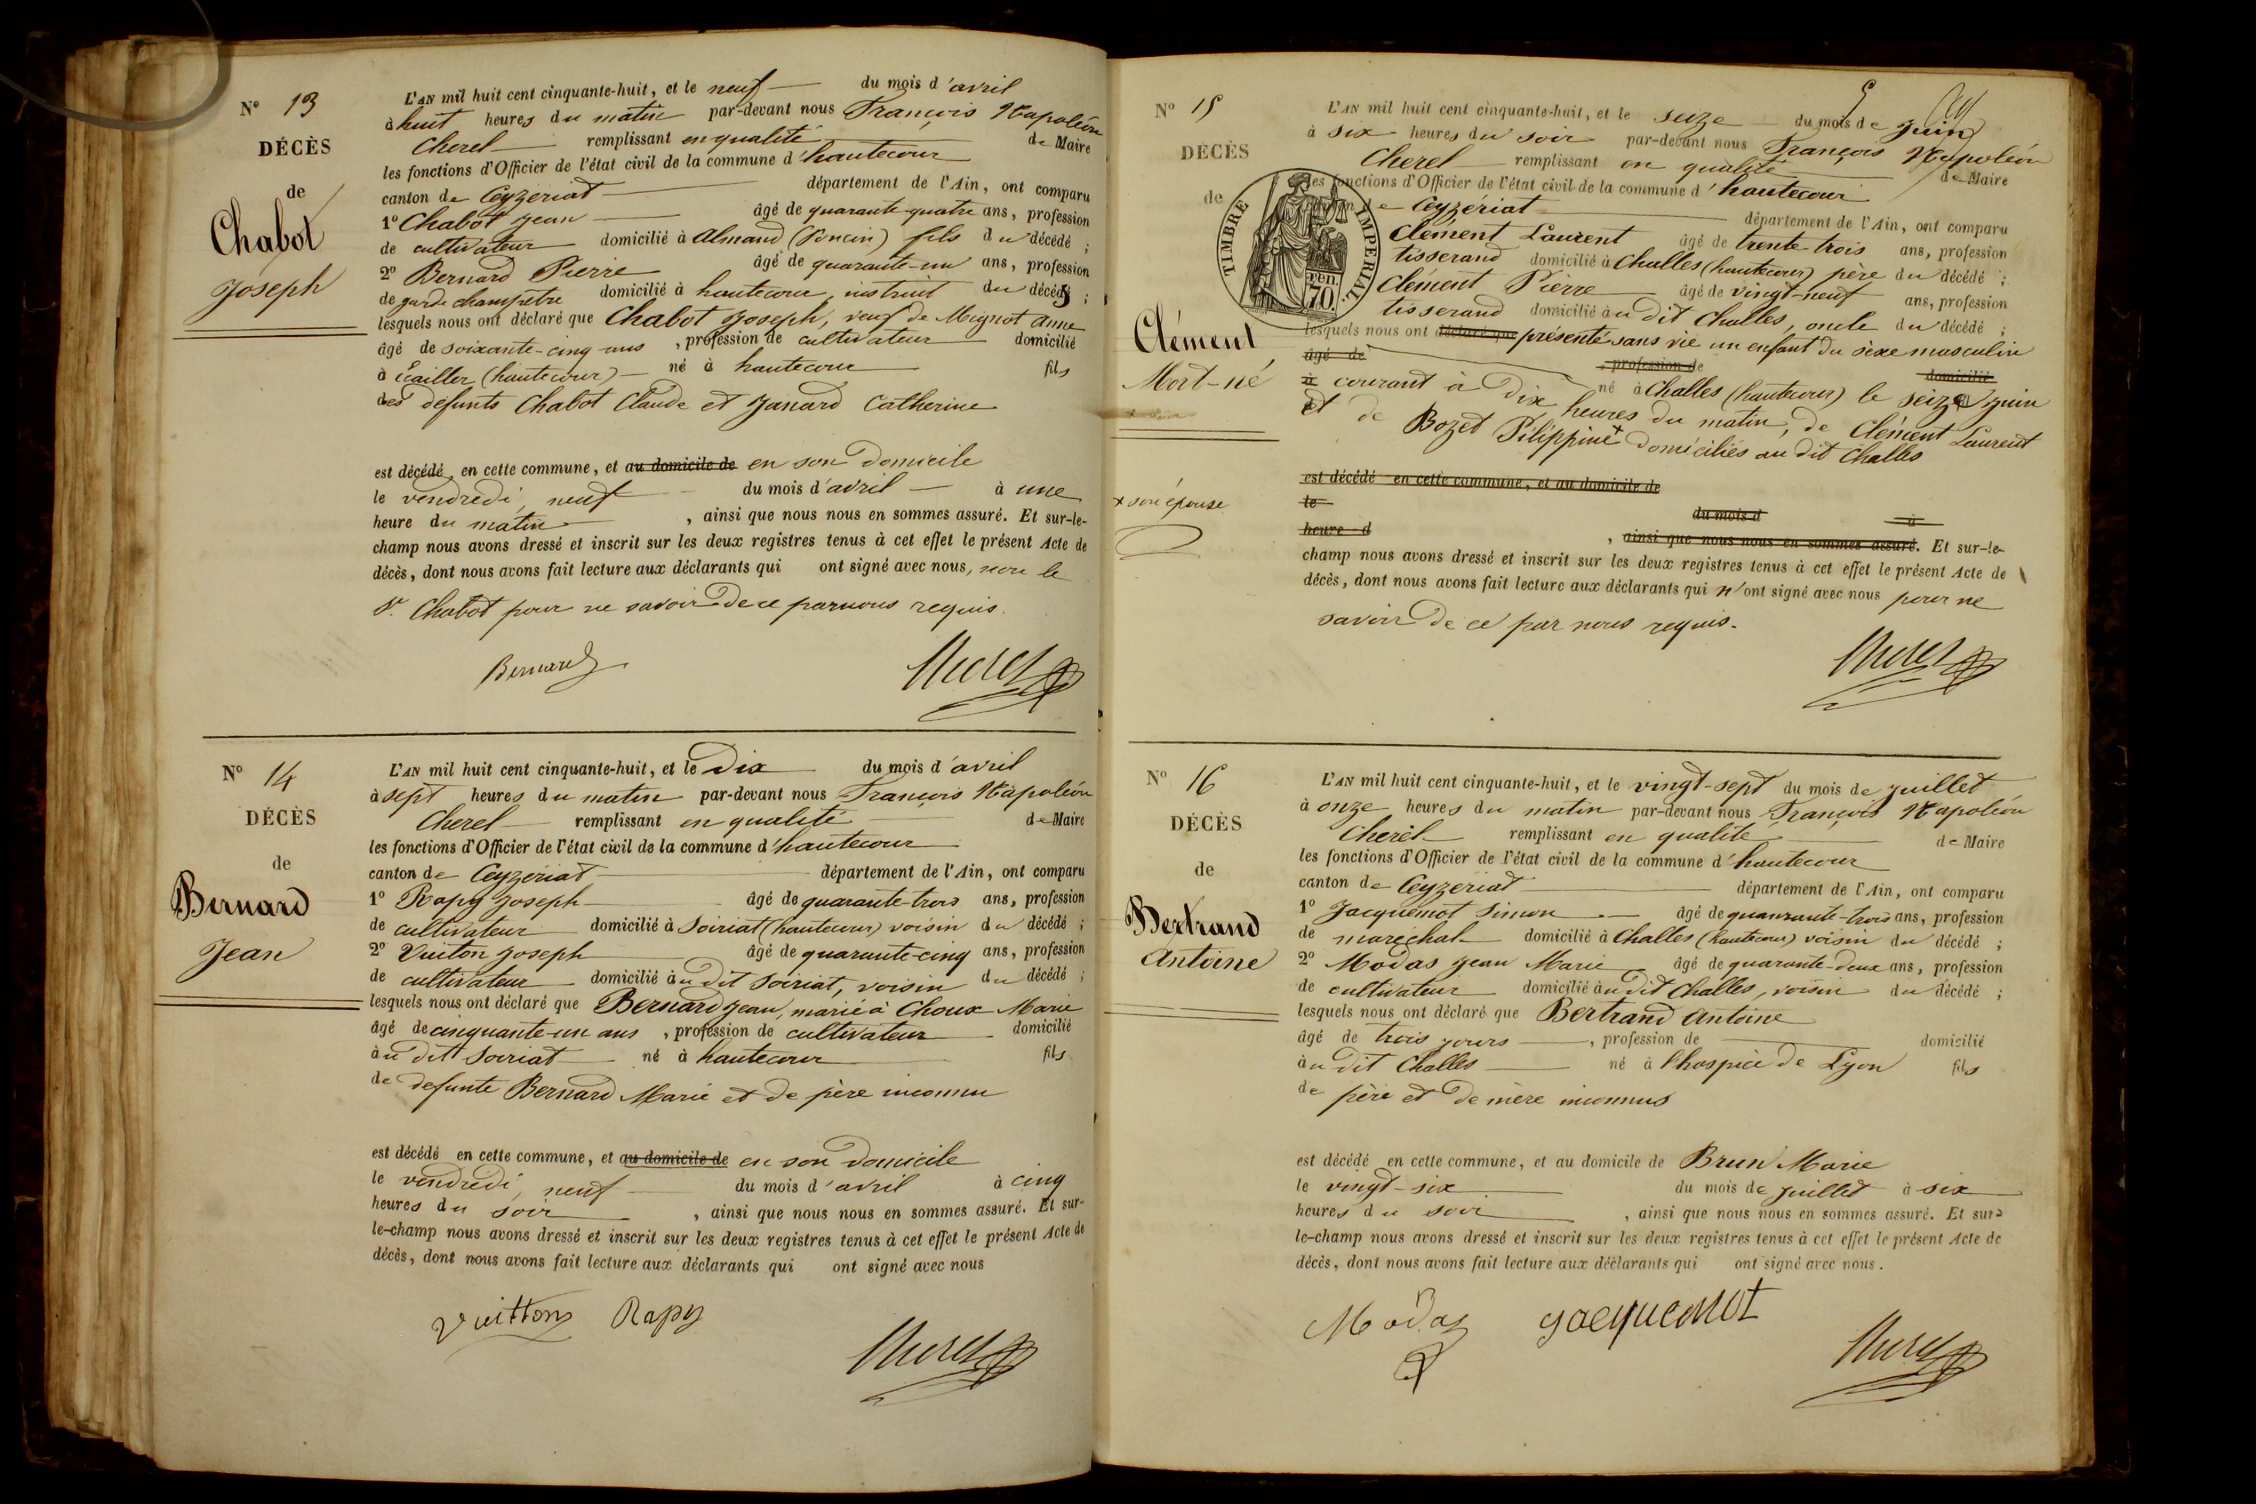 N° 13
DÉCÈS
de
Chabot
Joseph
L'AN mil huit cent cinquante-huit, et le neuf du mois d'avril
à huit heures du matin par-devant nous François Napoléon
Cherel remplissant en qualité de Maire
les fonctions d'Officier de l'état civil de la commune d'hautecour
canton de Ceyzeriat département de l'Ain, ont comparu
1° Chabot Jean âgé de quarante-quatre ans, profession
de cultivateur domicilié à Almand (Poncin) fils du décédé ;
2° Bernard Pierre âgé de quarante-un ans, profession
de garde champetre domicilié à hautecour, du décédé ;
lesquels nous ont déclaré que Chabot Joseph, veuf de Mignot Anne
âgé de soixante-cinq ans, profession de cultivateur domicilié
à (hautecour) né à hautecour fils
des defunts Chabot Claude et Janard Catherine
est décédé en cette commune, et au domicile de en son domicile
le vendredi, neuf du mois d'avril à une
heure du matin, ainsi que nous nous en sommes assuré. Et sur-le-
champ nous avons dressé et inscrit sur les deux registres tenus à cet effet le présent Acte de
décès, dont nous avons fait lecture aux déclarants qui ont signé avec nous, non le
Sr Chabot pour ne savoir de ce par nous requis.
Bernard
Cherel
N° 14
DÉCÈS
de
Bernard
Jean
L'AN mil huit cent cinquante-huit, et le Dix du mois d'avril
à sept heures du matin par-devant nous François Napoléon
Cherel remplissant en qualité de Maire
les fonctions d'Officier de l'état civil de la commune d'hautecour
canton de Ceyzeriat département de l'Ain, ont comparu
1° Rapy Joseph âgé de quarante-trois ans, profession
de cultivateur domicilié à Soiriat (hautecour) voisin du décédé ;
2° Vuiton Joseph âgé de quarante-cinq ans, profession
de cultivateur domicilié au dit Soiriat, voisin du décédé ;
lesquels nous ont déclaré que Bernard Jean, marié à Choux Marie
âgé de cinquante-un ans, profession de cultivateur domicilié
au dit Soiriat né à hautecour fils
de defunte Bernard Marie et de père inconnu
est décédé en cette commune, et au domicile de en son domicile
le vendredi, neuf du mois d'avril à cinq
heures du soir, ainsi que nous nous en sommes assuré. Et sur-
le-champ nous avons dressé et inscrit sur les deux registres tenus à cet effet le présent Acte de
décès, dont nous avons fait lecture aux déclarants qui ont signé avec nous
Vuitton Rapy
Cherel
N° 15
DÉCÈS
de
Clément
Mort-né
TIMBRE IMPÉRIAL.
70.
L'AN mil huit cent cinquante-huit, et le seize du mois de Juin
à six heures du soir par-devant nous François Napoléon
Cherel remplissant en qualité de Maire
les fonctions d'Officier de l'état civil de la commune d'hautecour
canton de Ceyzériat département de l'Ain, ont comparu
Clément Laurent âgé de trente-trois ans, profession
tisserand domicilié à Challes (hautecour) père du décédé ;
Clément Pierre âgé de vingt-neuf ans, profession
tisserand domicilié au dit Challes, oncle du décédé ;
lesquels nous ont déclaré que présenté sans vie un enfant du sexe masculin
âgé de profession de domicilié
à courant à Dix né à Challes (hautecour) le seize Juin
heures du matin, de Clément Laurent
et de Bozet Pilippine + domiciliés au dit Challes
+ son épouse
est décédé en cette commune, et au domicile de
le du mois d à
heure d, ainsi que nous nous en sommes assuré. Et sur-le-
champ nous avons dressé et inscrit sur les deux registres tenus à cet effet le présent Acte de
décès, dont nous avons fait lecture aux déclarants qui n'ont signé avec nous pour ne
savoir de ce par nous requis.
Cherel
N° 16
DÉCÈS
de
Bertrand
Antoine
L'AN mil huit cent cinquante-huit, et le vingt-sept du mois de juillet
à onze heures du matin par-devant nous François Napoléon
Cherel remplissant en qualité de Maire
les fonctions d'Officier de l'état civil de la commune d'hautecour
canton de Ceyzériat département de l'Ain, ont comparu
1° Jacquemot Simon âgé de quanrante-trois ans, profession
de marechal domicilié à Challes (hautecour) voisin du décédé ;
2° Modas Jean Marie âgé de quarante-deux ans, profession
de cultivateur domicilié au dit Challes, voisin du décédé ;
lesquels nous ont déclaré que Bertrand Antoine
âgé de trois jours, profession de domicilié
au dit Challes né à l'hospice de Lyon fils
de père et de mère inconnus
est décédé en cette commune, et au domicile de Brun Marie
le vingt-six du mois de juillet à six
heures du soir, ainsi que nous nous en sommes assuré. Et sur-
le-champ nous avons dressé et inscrit sur les deux registres tenus à cet effet le présent Acte de
décès, dont nous avons fait lecture aux déclarants qui ont signé avec nous.
Modas Jacquemot
Cherel